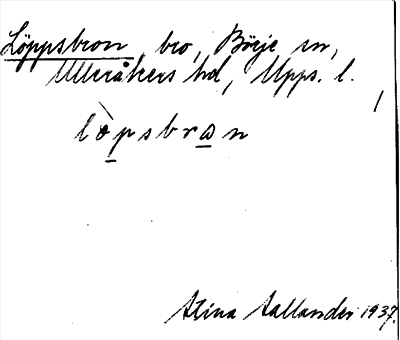 Löppsbron bro, Börje sn,
Ulleråkers hd, Upps. l.
lòpsbran
Stina Sallander 1937.